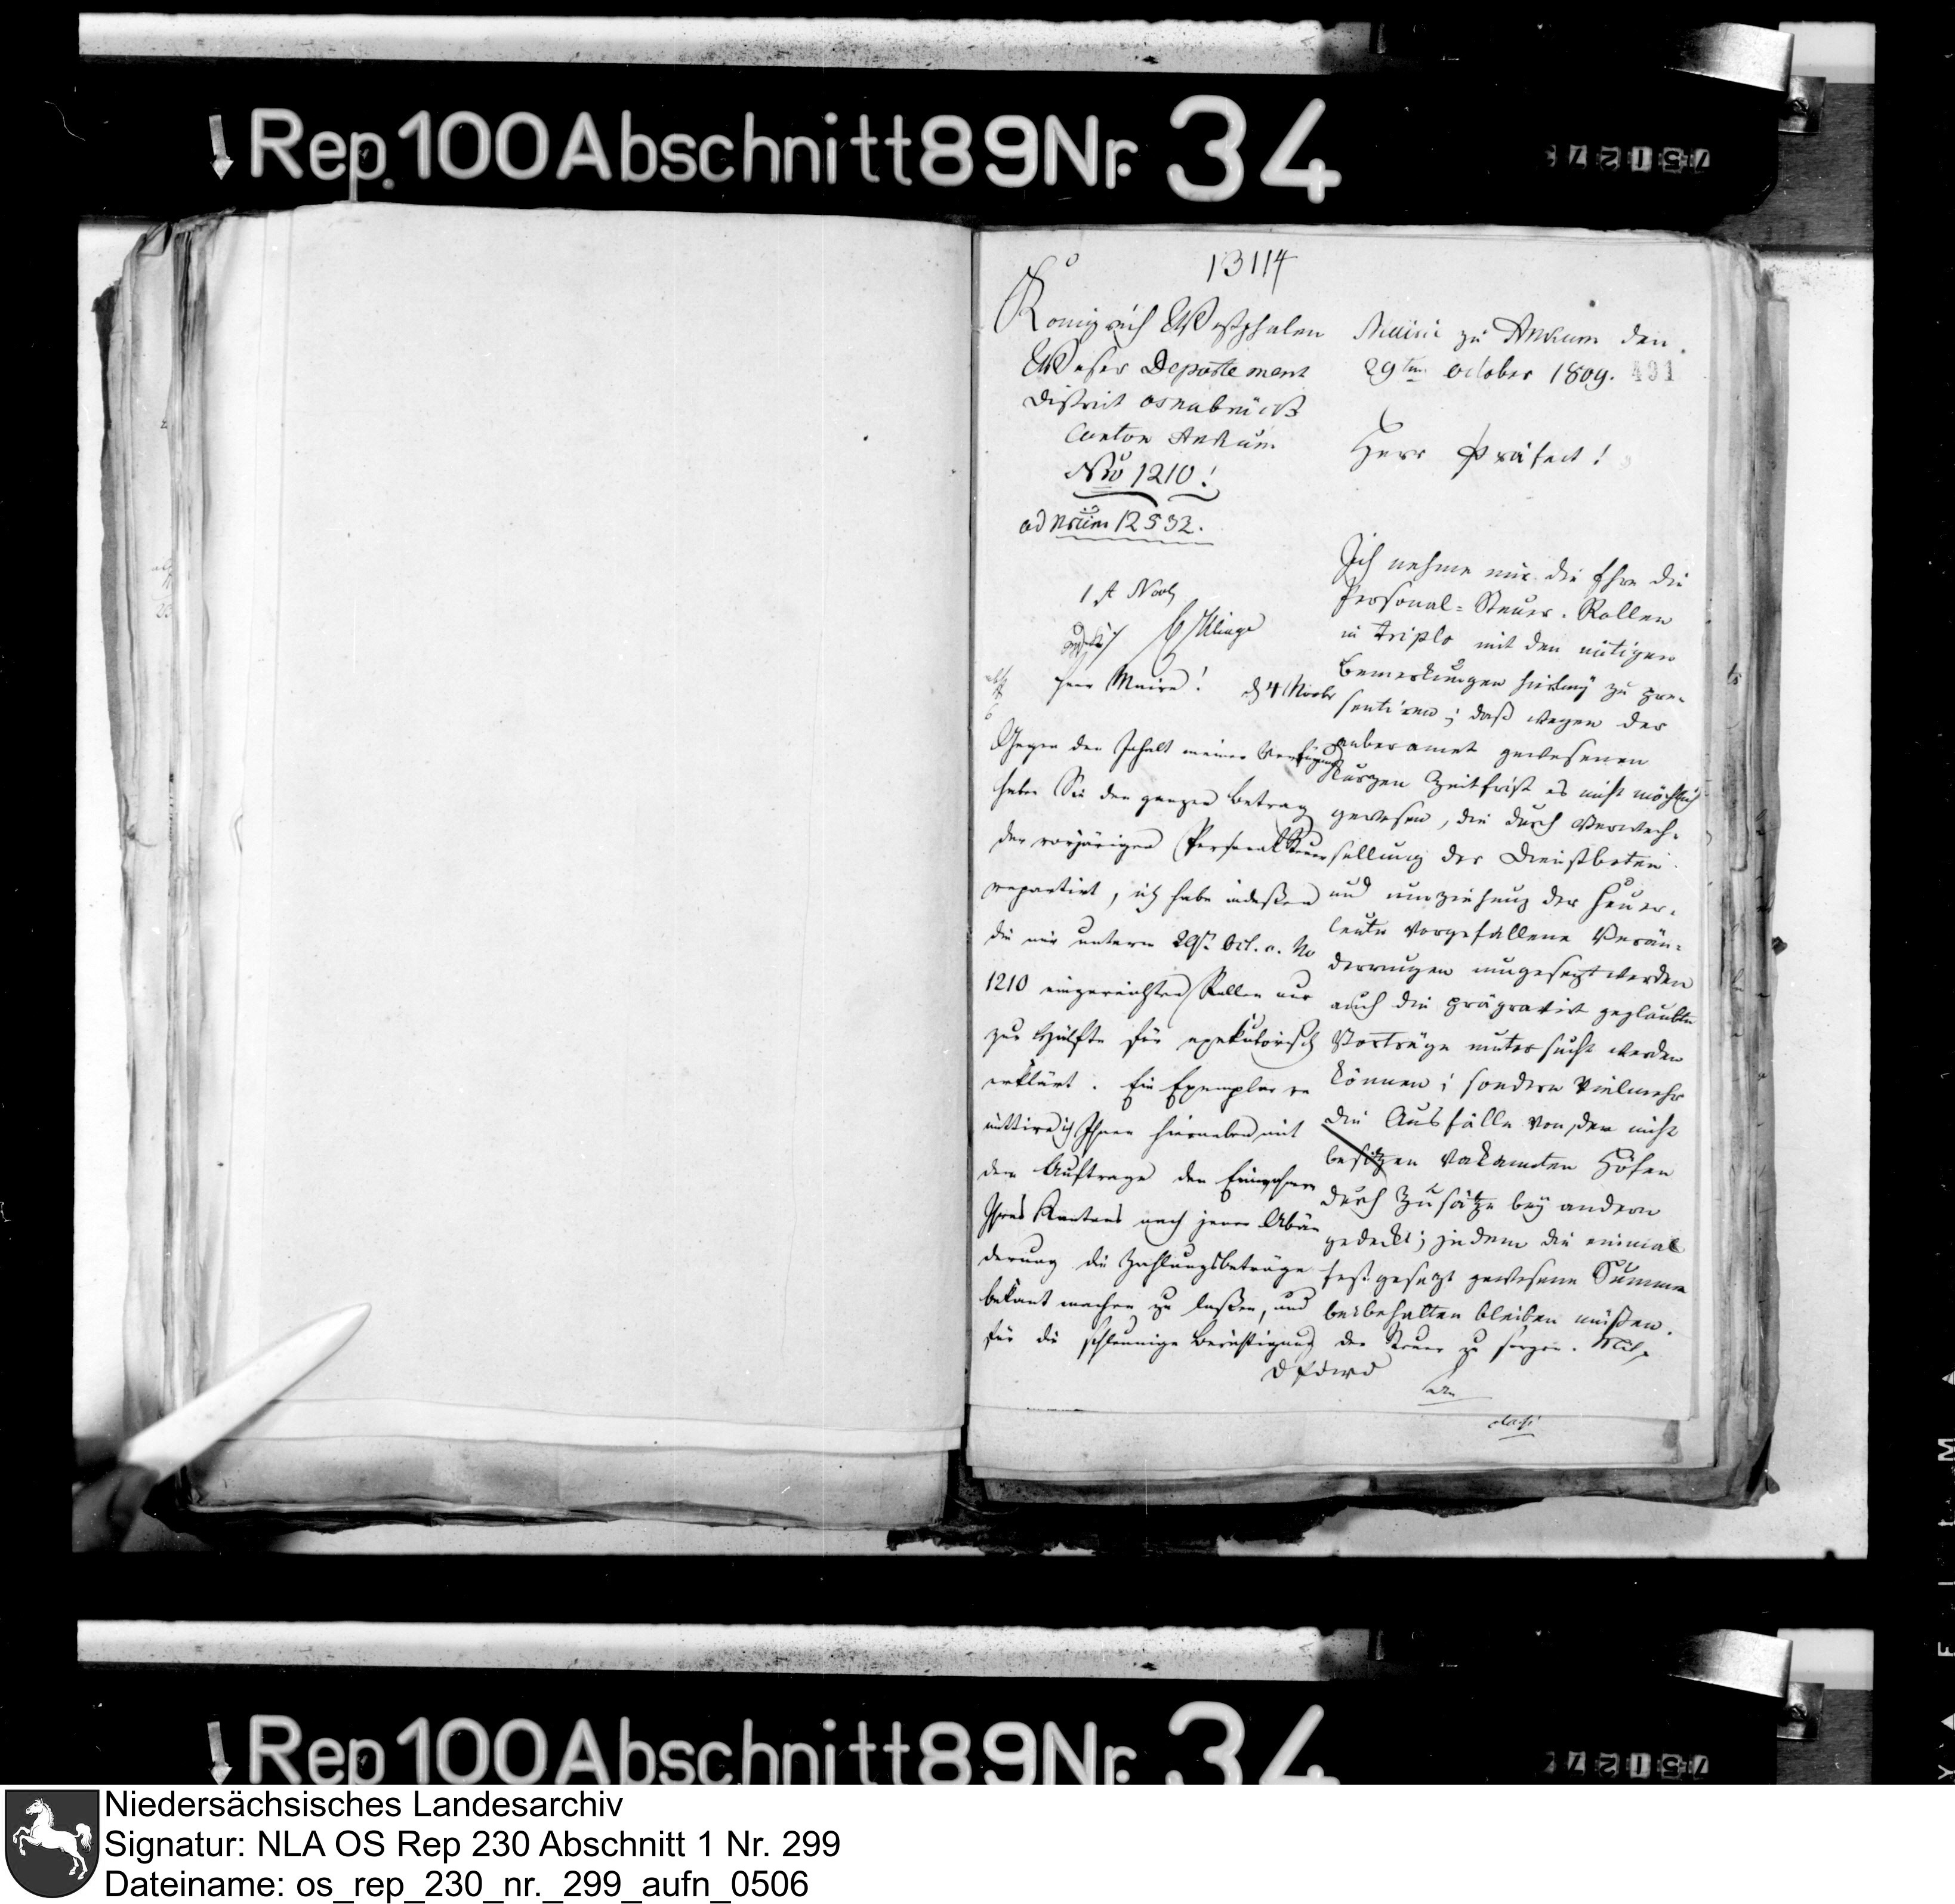 Rep. 100 Abschnitt 89 Nr. 34
13114
Königreich Westphalen
Weser Departement
District Osnabrück
Canton Ankum
Nro 1210!
ad Num 12532.
Mairie zu Ankum den
29ten October 1809.
491
Herr Präfect!
Ich nehme mir die Ehre die
Personal-Steuer-Rollen
in triplo mit den nötigen
Bemerkungen hierbey zu pre-
sentiren; daß wegen der
anberaumt gewesenen
kurzen Zeitfrist es nicht möchlich
gewesen, die durch Verwech-
sellung der Dienstboten
und umziehung der Heuer-
leute vorgefallene Verän-
derungen umgesezt werden
auch die prägravirt geglaubte
Vorträge untersucht werden
können; sondern vielmehr
die Ausfälle von den nicht
besitzen vakanten Höfen
durch Zusätze bey andern
gedeckt; indem die einmal
festgesezt gewesene Summe
beibehalten bleiben müßen.
1 st Novb
Herr Maire! d 4 Novbr
Gegen den Inhalt meiner Verfügung
haben Sie den ganzen Betrag
der vorjärigen Personal Steuer
repartirt, ich habe indeßen
die mir unterm 29st Oct. c. No
1210 eingereichten Rollen nur
zur Hälfte für exekutorisch
erklärt. Ein Exemplar re
mittire ich Ihnen hierneben mit
dem Auftrage den Einwohnern
Ihres Kantons nach jener Abän
derung die Zahlungsbeträge
bekant machen zu laßen, und
für die schleunige Berichtigung der Steuer zu sorgen.
Rep. 100 Abschnitt 89 Nr. 34
Niedersächsisches Landesarchiv
Signatur: NLA OS Rep 230 Abschnitt 1 Nr. 299
Dateiname: os_rep_230_nr._299_aufn_0506